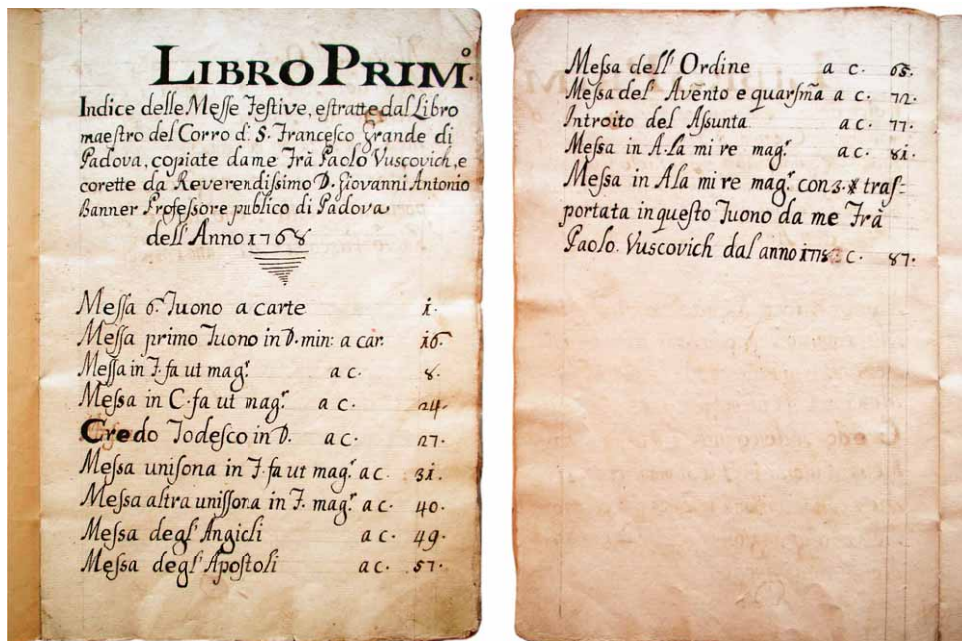 LIBRO PRIMo.
Indice delle Meſse Festive, eſtratte dal Libro
maeſtro del Corro di S. Francesco Grande di
Padova, copiate da me Frà Paolo Vuscovich, e
corette da Reverendiſsimo D. Giovanni Antonio
Banner Profeſsore publico di Padova
dell'Anno 1768
Meſsa 6.º Tuono a carte 1.
Meſsa primo Tuono in D. min: a car. 16.
Meſsa in F. fa ut mag.r a c. 8.
Meſsa in C. fa ut mag.r a c. 24.
Credo Todesco in D. a c. 27.
Meſsa uniſona in F. fa ut mag.r a c. 31.
Meſsa altra uniſsona in F. mag.r a c. 40.
Meſsa degl' Angicli a c. 49.
Meſsa degl' Apoſtoli a c. 57.
Meſsa dell' Ordine a c. 65.
Meſsa del' Avento e quarſma a c. 72.
Introito del Aſsunta a c. 77.
Meſsa in A. la mi re mag.r a c. 81.
Meſsa in A la mi re mag.r con 3. # traſ-
portata in queſto Tuono da me Frà
Paolo Vuscovich dal anno c. 87.